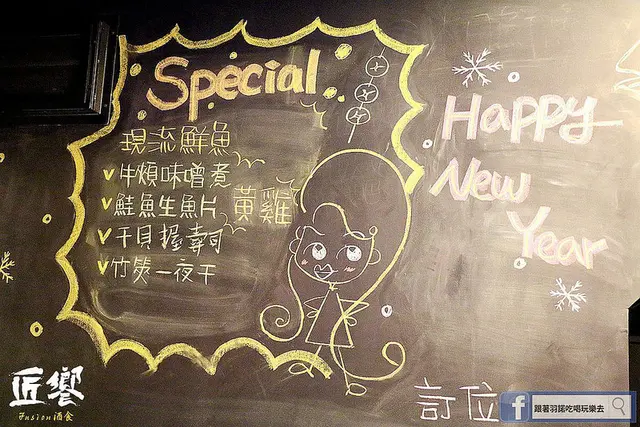 Special
現流鮮魚
牛頰味噌煮
鮭魚生魚片
黃雞
干貝握壽司
竹筴一夜干
Happy
New
Year
訂位
匠饗
Fusion酒食
跟著羽諾吃喝玩樂去